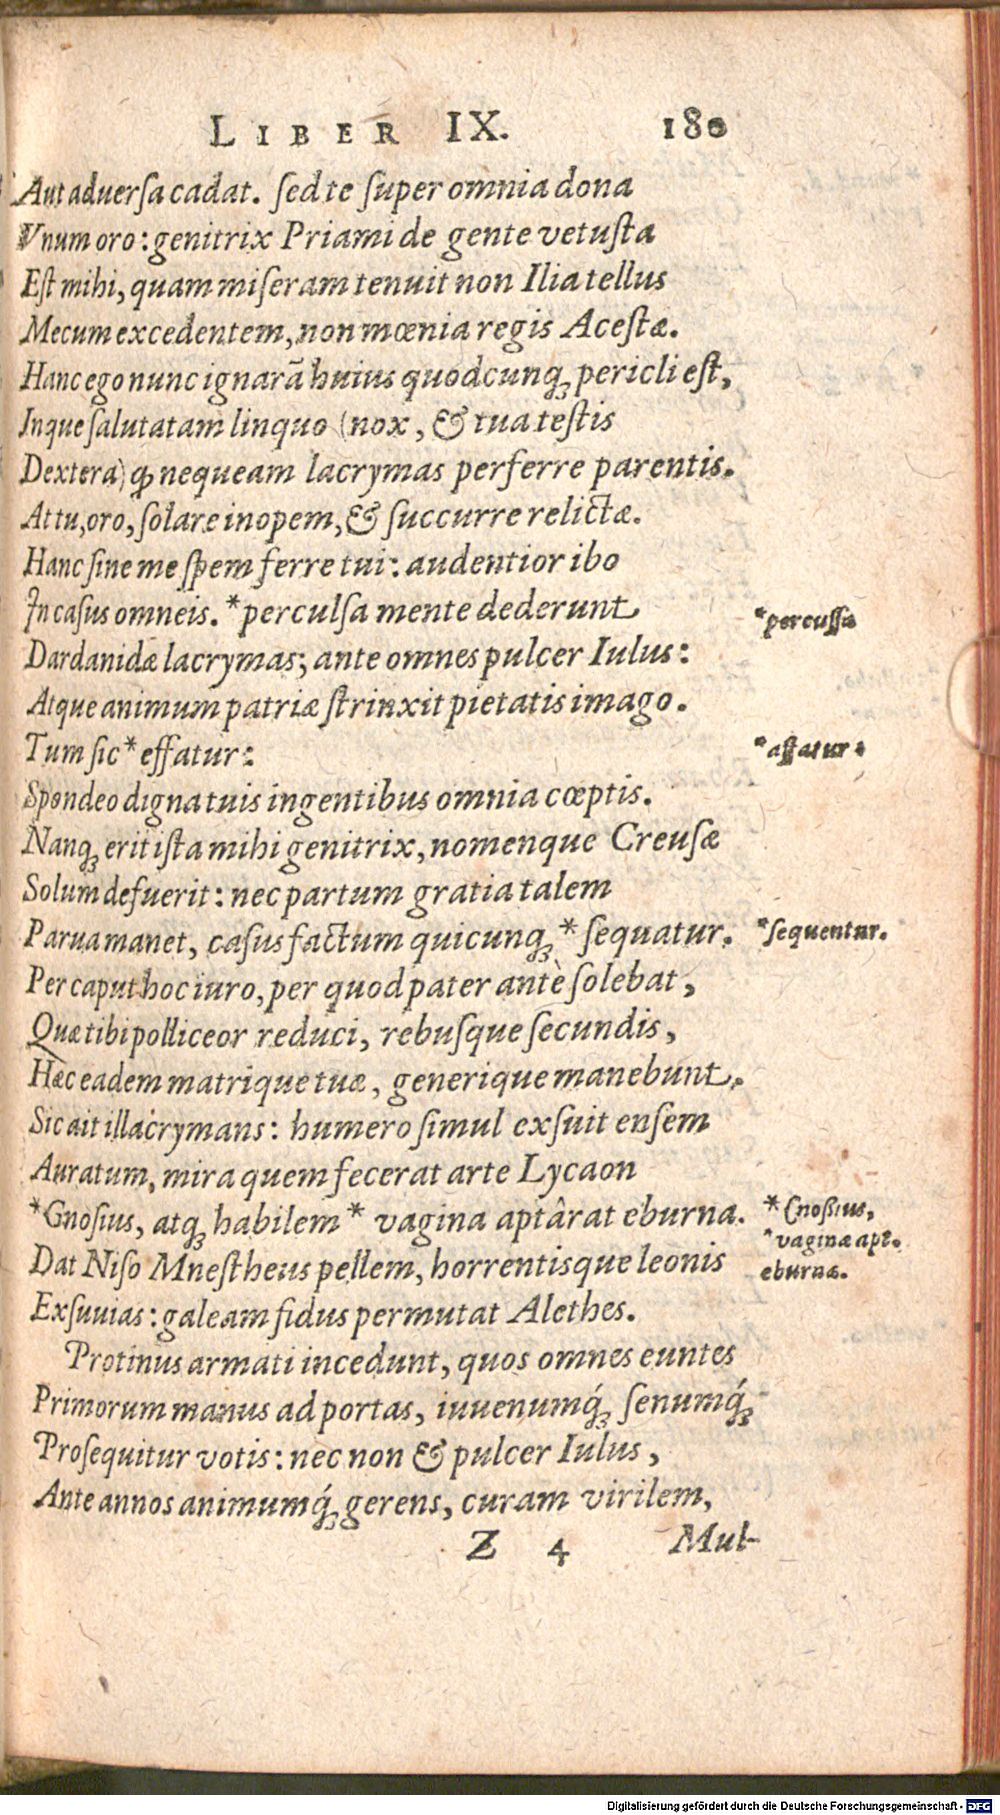 LIBER IX. 180
Aut aduersa cadat. sed te super omnia dona
Vnum oro: genitrix Priami de gente vetusta
Est mihi, quam miseram tenuit non Ilia tellus
Mecum excedentem, non mœnia regis Acestæ.
Hanc ego nunc ignarā huius quodcunq; pericli est,
Inque salutatam linquo (nox, & tua testis
Dextera) ꝙ nequeam lacrymas perferre parentis.
At tu, oro, solare inopem, & succurre relictæ.
Hanc sine me spem ferre tui: audentior ibo
In casus omneis. *perculsa mente dederunt *percussa
Dardanidæ lacrymas; ante omnes pulcer Iulus:
Atque animum patriæ strinxit pietatis imago.
Tum sic *effatur: *affatur:
Spondeo digna tuis ingentibus omnia cœptis.
Nanq; erit ista mihi genitrix, nomenque Creusæ
Solum defuerit: nec partum gratia talem
Parua manet, casus factum quicunq; *sequatur. *sequentur.
Per caput hoc iuro, per quod pater antè solebat,
Quæ tibi polliceor reduci, rebusque secundis,
Hæc eadem matrique tuæ, generique manebunt.
Sic ait illacrymans: humero simul exsuit ensem
Auratum, mira quem fecerat arte Lycaon
*Gnosius, atq; habilem *vagina aptârat eburna. *Cnosius,
*vaginæ apt.
Dat Niso Mnestheus pellem, horrentisque leonis eburnæ.
Exsuuias: galeam fidus permutat Alethes.
Protinus armati incedunt, quos omnes euntes
Primorum manus ad portas, iuuenumq́; senumq́;
Prosequitur votis: nec non & pulcer Iulus,
Ante annos animumq́; gerens, curam virilem,
Z 4 Mul-
Digitalisierung gefördert durch die Deutsche Forschungsgemeinschaft - DFG